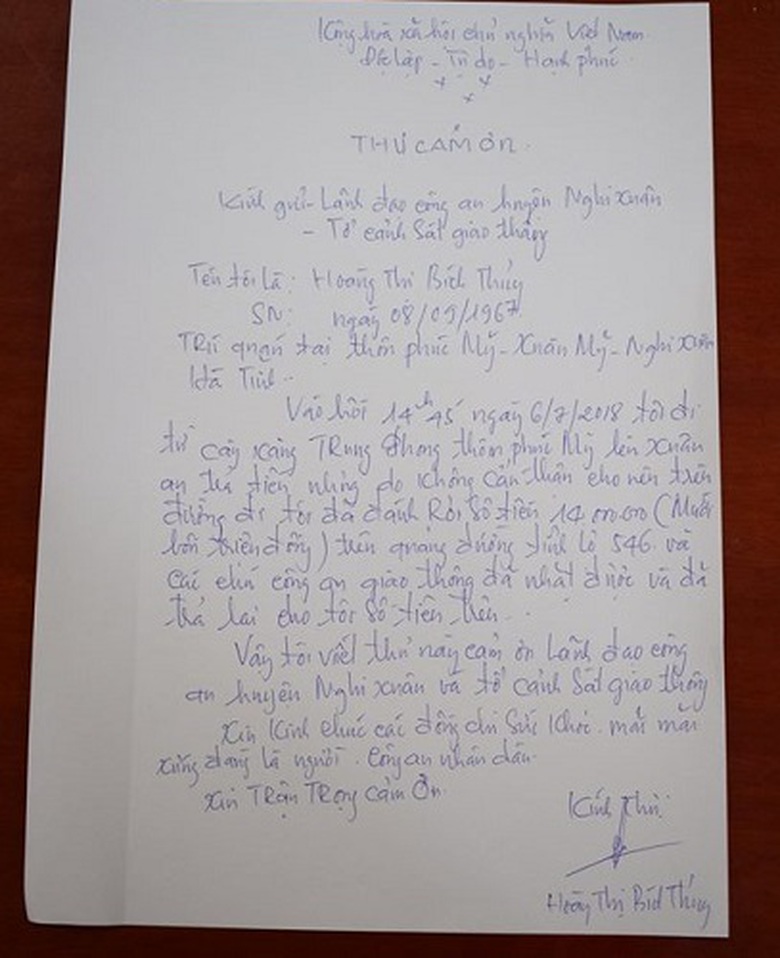 Cộng hòa xã hội chủ nghĩa Việt Nam
Độc lập - Tự do - Hạnh phúc
THƯ CẢM ƠN
Kính gửi - Lãnh đạo công an huyện Nghi xuân
- Tổ cảnh Sát giao thông
Tên tôi là: Hoàng Thị Bích Thủy
SN: ngày 08/09/1967
TRú quán tại thôn phúc Mỹ - Xuân Mỹ - Nghi xuân
Hà Tĩnh.
Vào hồi 14h45' ngày 6/7/2018 tôi đi
từ cây xăng TRung Phong thôn phúc Mỹ lên xuân
an trả tiền nhưng do không cẩn thận cho nên trên
đường đi tôi đã đánh Rơi Số tiền 14 000.000 (Mười
bốn triệu đồng) trên quảng đường tỉnh lộ 546 và
các chú công an giao thông đã nhặt được và đã
trả lại cho tôi Số tiền trên.
Vậy tôi viết thư này cảm ơn Lãnh đạo công
an huyện Nghi xuân và tổ cảnh Sát giao thông
Xin Kính chúc các đồng chí Sức Khỏe. mãi mãi
xứng đáng là người. Công an nhân dân.
Xin TRận TRọng cảm Ơn
Kính Thư:
Hoàng Thị Bích Thủy